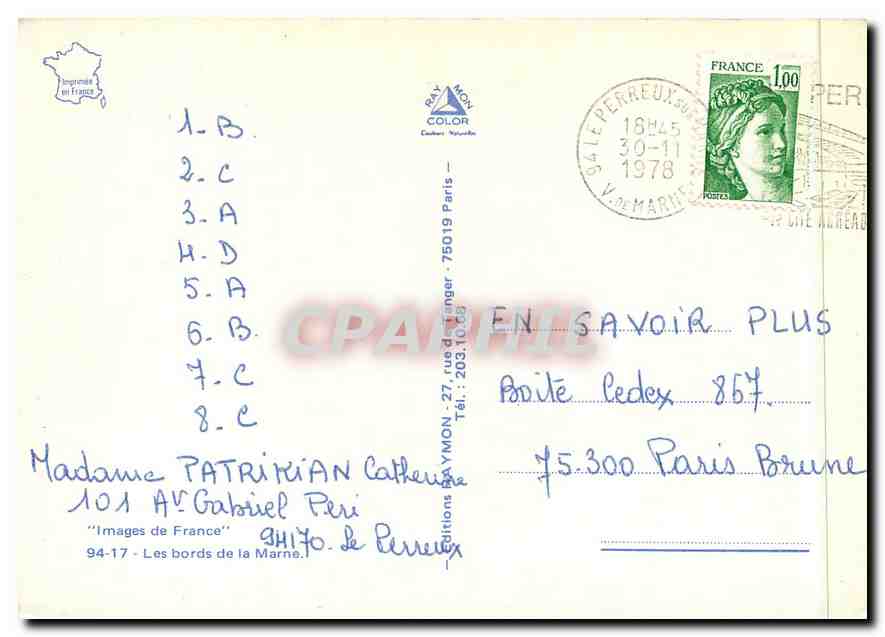 Imprimée
en France
RAYMON
COLOR
Couleurs Naturelles
FRANCE
1,00
POSTES
94 LE PERREUX SUR
18H45
30-11
1978
V. DE MARNE
PER
1-B.
2-C
3-A
4-D
5-A
6-B.
7-C
8-C
Madame PATRIKIAN Catherine
101 Av. Gabriel Peri
94170. Le Perreux
"Images de France"
94-17 - Les bords de la Marne.
Editions RAYMON - 27, rue de Tanger - 75019 Paris
Tél. : 203.10.68
CPARHIL
EN SAVOIR PLUS
Boite Cedex 857.
75.300 Paris Brune